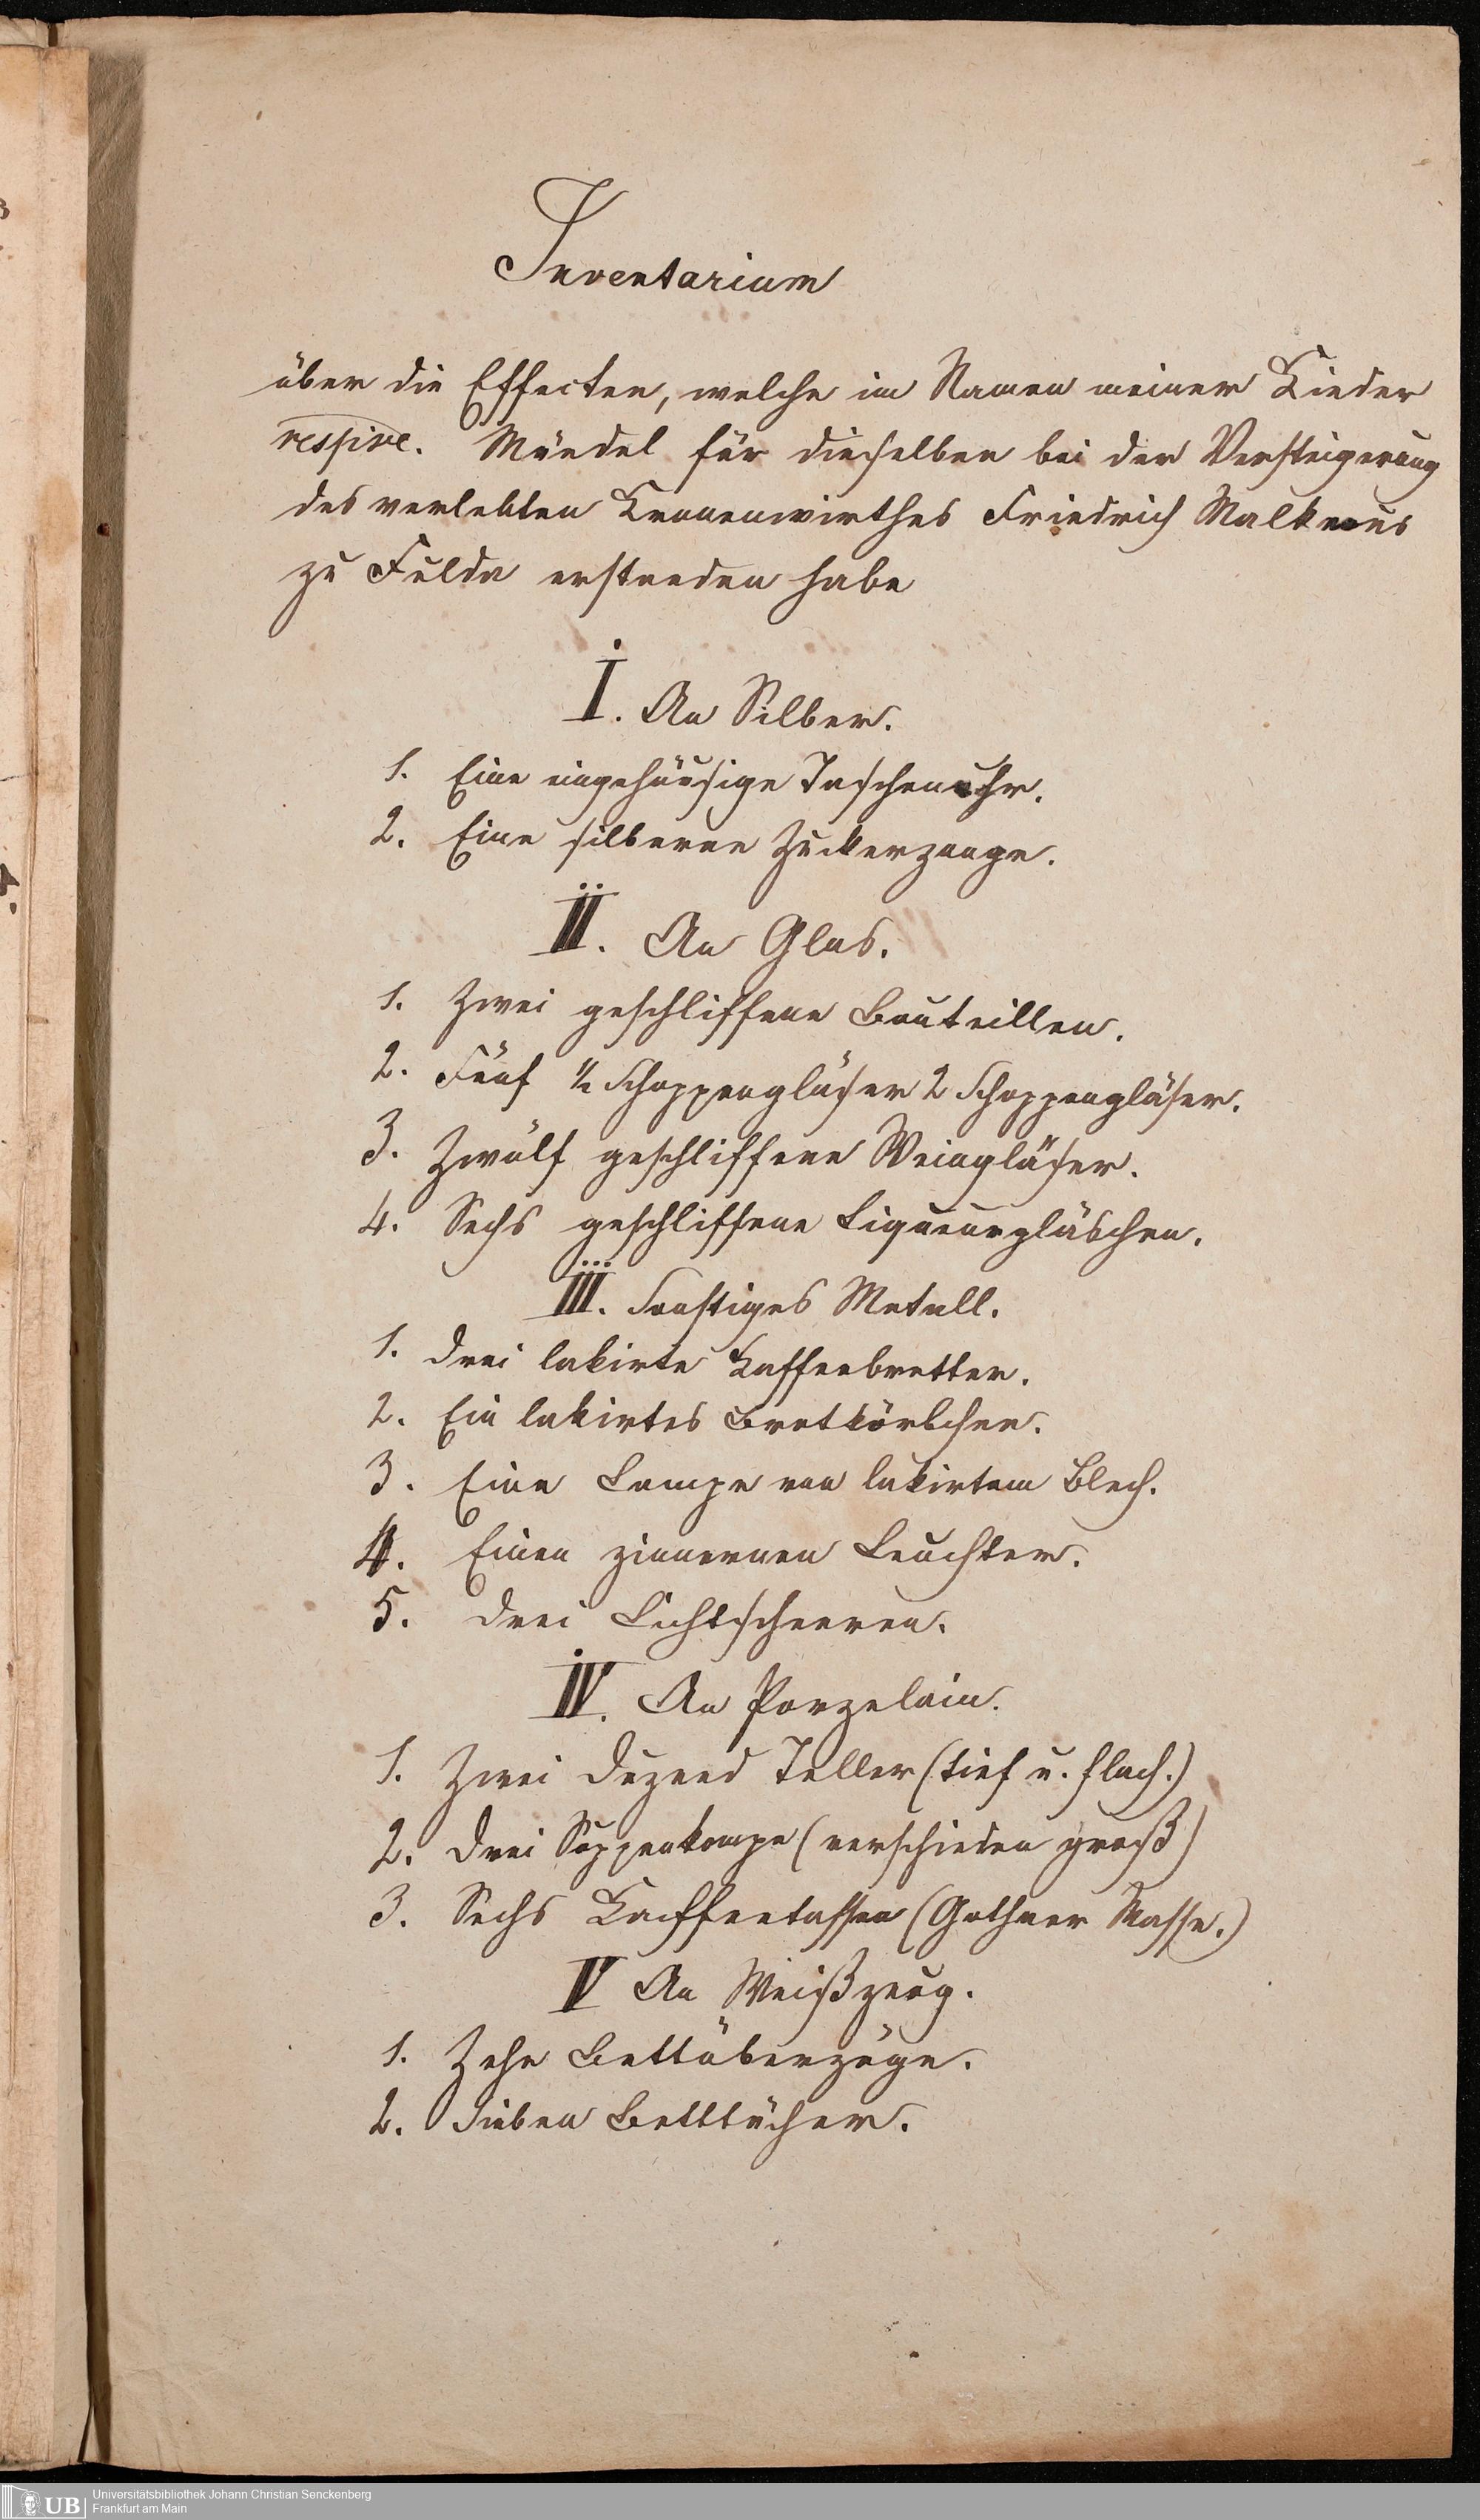 Inventarium
über die Effecten, welche im Namen meiner Kinder
respive. Mündel für dieselben bei der Versteigerung
des verlebten Kronenwirthes Friedrich Malkmus
zu Fulda erstanden habe
I. An Silber.
1. Eine eingehäusige Taschenuhr.
2. Eine silberne Zuckerzange.
II. An Glas.
1. Zwei geschliffene Bouteillen.
2. Fünf ½ Schoppengläser 2 Schoppengläser.
3. Zwölf geschliffene Weingläser.
4. Sechs geschliffene Liqueurgläschen.
III. Sonstiges Metall.
1. Drei lakirte Kaffeebretter.
2. Ein lakirtes Brotkörbchen.
3. Eine Lampe von lakirtem Blech.
4. Einen zinnernen Leuchter.
5. Drei Lichtscheeren.
IV. An Porzelain.
1. Zwei Duzend Teller (tief u. flach.)
2. Drei Suppenkompe (verschieden groß)
3. Sechs Kaffeetassen (Gothaer Masse.)
V An Weißzeug.
1. Zehn Bettüberzüge.
2. Sieben Betttücher.
UB
Universitätsbibliothek Johann Christian Senckenberg
Frankfurt am Main